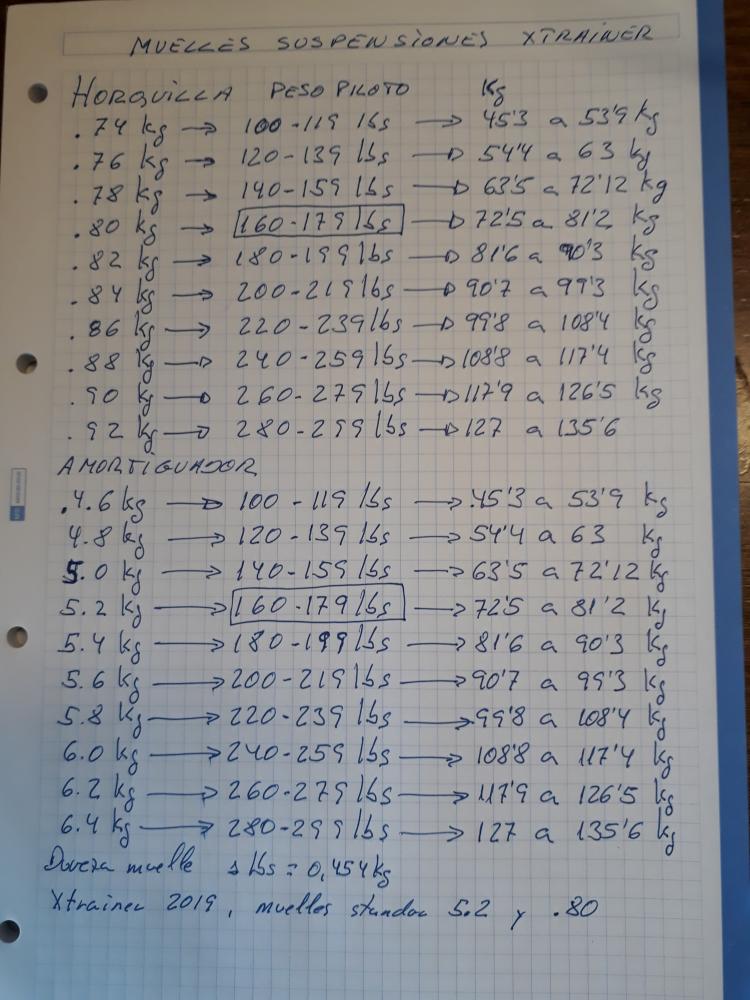 MUELLES SUSPENSIONES XTRAINER
HORQUILLA PESO PILOTO Kg
.74 kg → 100-119 lbs → 45'3 a 53'9 kg
.76 kg → 120-139 lbs → 54'4 a 63 kg
.78 kg → 140-159 lbs → 63'5 a 72'12 kg
.80 kg → 160-179 lbs → 72'5 a 81'2 kg
.82 kg → 180-199 lbs → 81'6 a 90'3 kg
.84 kg → 200-219 lbs → 90'7 a 99'3 kg
.86 kg → 220-239 lbs → 99'8 a 108'4 kg
.88 kg → 240-259 lbs → 108'8 a 117'4 kg
.90 kg → 260-279 lbs → 117'9 a 126'5 kg
.92 kg → 280-299 lbs → 127 a 135'6
AMORTIGUADOR
.4.6 kg → 100-119 lbs → 45'3 a 53'9 kg
4.8 kg → 120-139 lbs → 54'4 a 63 kg
5.0 kg → 140-159 lbs → 63'5 a 72'12 kg
5.2 kg → 160-179 lbs → 72'5 a 81'2 kg
5.4 kg → 180-199 lbs → 81'6 a 90'3 kg
5.6 kg → 200-219 lbs → 90'7 a 99'3 kg
5.8 kg → 220-239 lbs → 99'8 a 108'4 kg
6.0 kg → 240-259 lbs → 108'8 a 117'4 kg
6.2 kg → 260-279 lbs → 117'9 a 126'5 kg
6.4 kg → 280-299 lbs → 127 a 135'6 kg
Dureza muelle 1 lbs = 0,454 kg
Xtrainer 2019, muelles standar 5.2 y .80